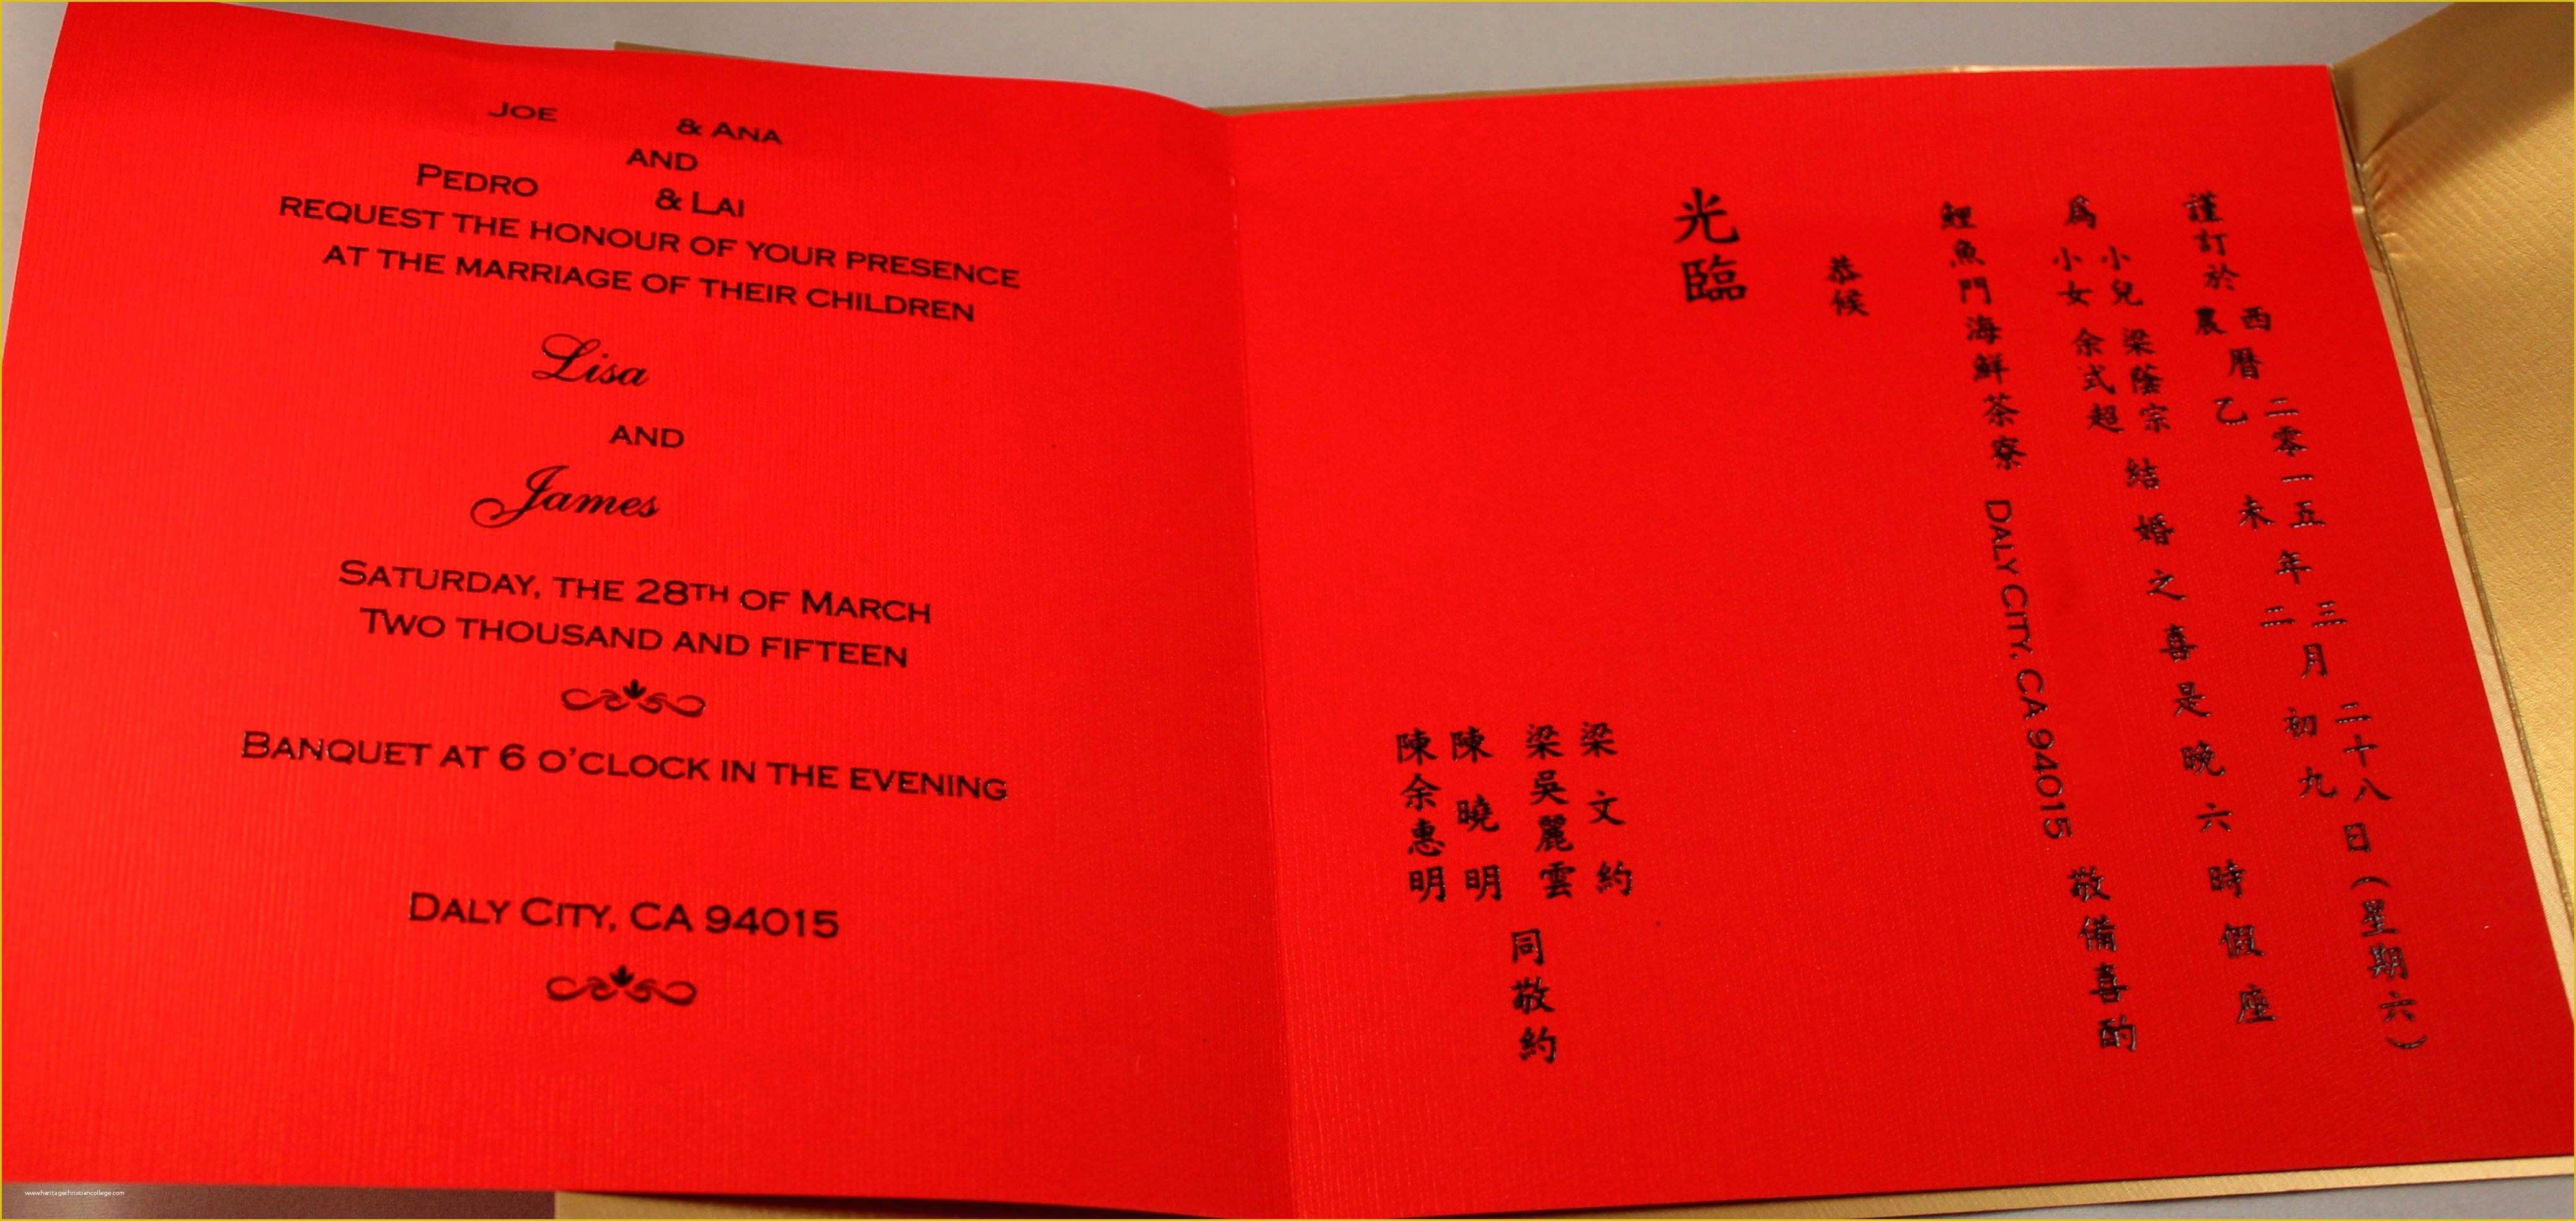 JOE & ANA
AND
PEDRO & LAI
REQUEST THE HONOUR OF YOUR PRESENCE
AT THE MARRIAGE OF THEIR CHILDREN
Lisa
AND
James
SATURDAY, THE 28TH OF MARCH
TWO THOUSAND AND FIFTEEN
BANQUET AT 6 O'CLOCK IN THE EVENING
DALY CITY, CA 94015
謹訂於
西曆二零一五年三月二十八日（星期六）
農曆乙未年二月初九日
為
小兒 梁蔭宗
小女 余式超
結婚之喜是晚六時假座
鯉魚門海鮮茶寮 DALY CITY, CA 94015 敬備喜酌
恭候
光臨
梁文約
梁吳麗雲
陳曉明
陳余惠明
同敬約
www.heritagechristiancollege.com